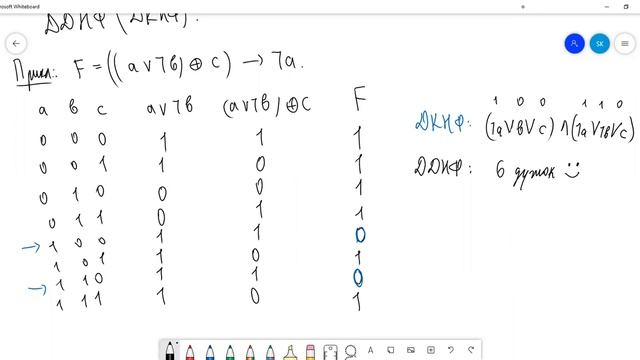 Microsoft Whiteboard
ДДНФ (ДКНФ).
Прикл.: F = ((a∨¬b) ⊕ c) → ¬a.
a b c a∨¬b (a∨¬b) ⊕ c F
0 0 0 1 1 1
0 0 1 1 0 1
0 1 0 0 0 1
0 1 1 0 1 1
→ 1 0 0 1 1 0
1 0 1 1 0 1
→ 1 1 0 1 1 0
1 1 1 1 0 1
1 0 0 1 1 0
ДКНФ: (¬a∨b∨c) ∧ (¬a∨¬b∨c)
ДДНФ: 6 дужок
SK